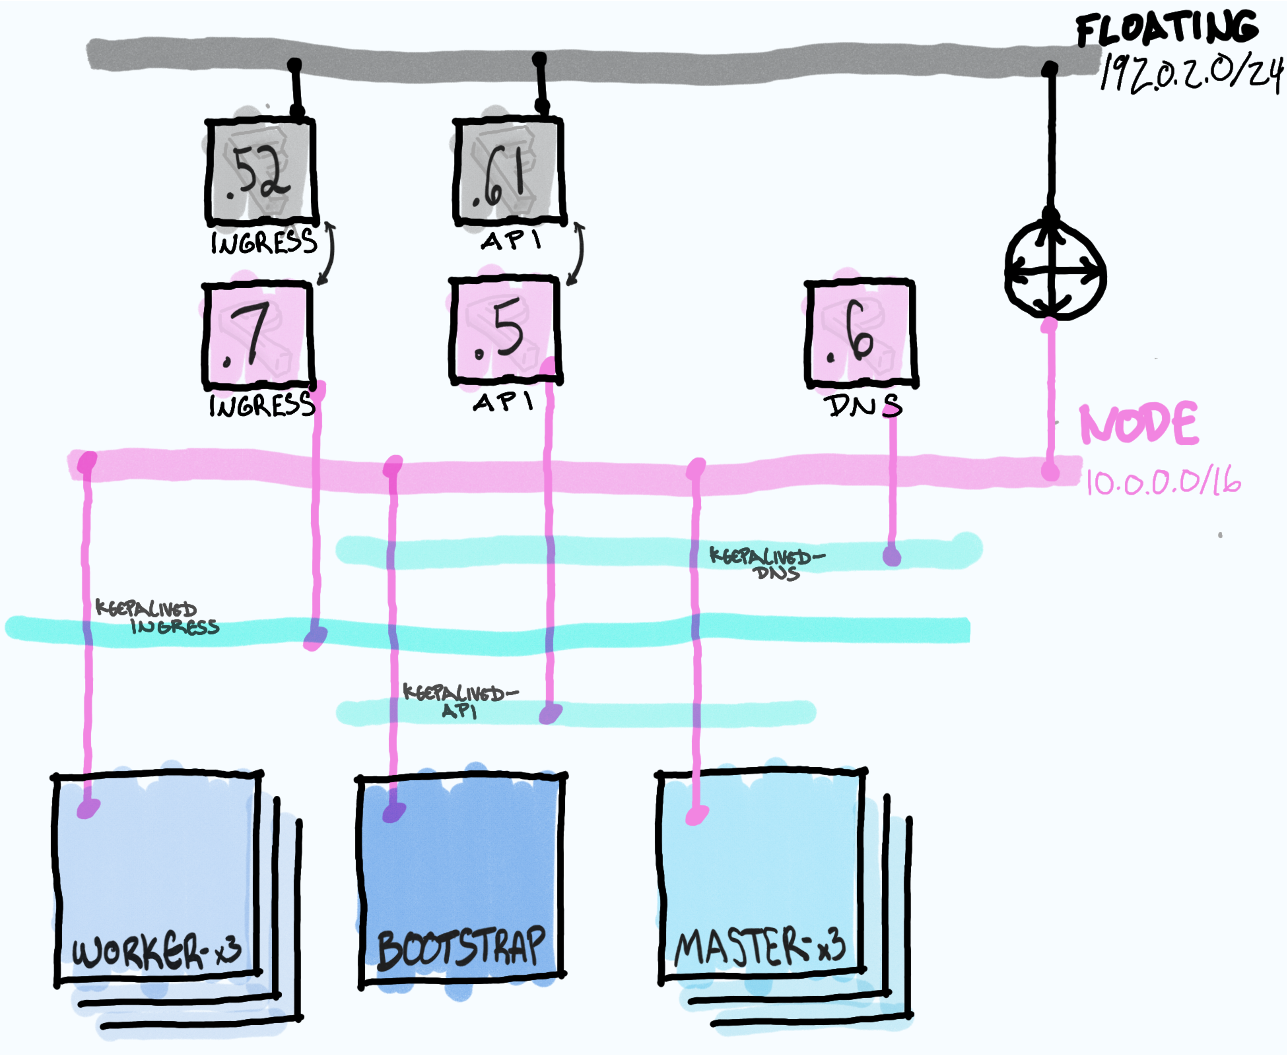 FLOATING
192.0.2.0/24
.52
.61
INGRESS
API
.7
.5
.6
INGRESS
API
DNS
NODE
10.0.0.0/16
KEEPALIVED-
DNS
KEEPALIVED
INGRESS
KEEPALIVED-
API
WORKER-x3
BOOTSTRAP
MASTER-x3